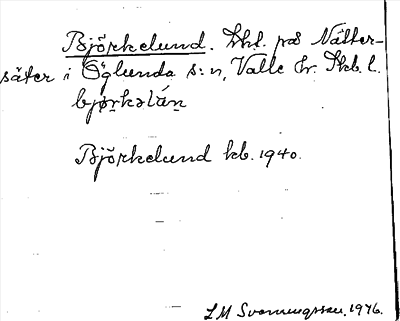 Björkelund. Lht. på Nätter-
säter i Öglunda s:n, Valle hr. Skb. l.
bjørkəlúṇ
Björkelund kb. 1940.
L M Svanungssen. 1976.